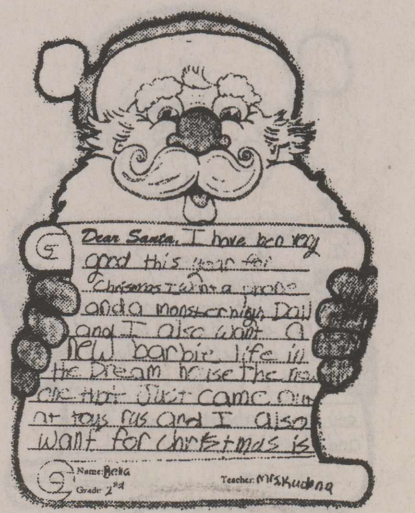 Dear Santa, I have ben very
good this year for
Chrismas I want a phone
and a monster high Doll
and I also want a
New barbie life in
the Dream house The new
one that Just came out
at toys rus and I also
want for christmas is
Name:
Grade: 2nd
Teacher: Mrs Kudena